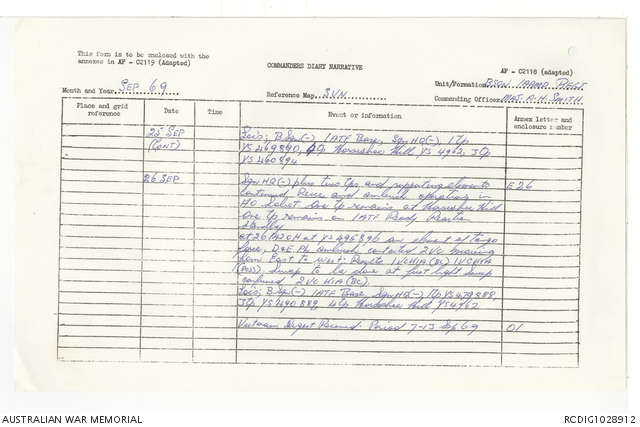 This form is to be enclosed with the
annexes in AF - C2119 (Adapted)
COMMANDERS DIARY NARRATIVE
AF - C2118 (adapted)
Month and Year SEP 69
Reference Map SVN
Unit/Formation BSQN 1ARMD REGT
Commanding Officer MAJ. R.H. SMITH
Place and grid reference
Date
Time
Event or information
Annex letter and enclosure number
25 SEP
(CONT)
Locs: B Sqn(-) 1ATF Base, Sqn HQ(-) 1Tp
YS 469890, Tp Horseshoe Hill, YS 4962, 3Tp
YS 460894
26 SEP
Sqn HQ(-) plus two tps and supporting elements
E26
continued Recce and ambush operations in
AO. One tp remains at Horseshoe Hill
One tp remains on 1ATF Ready Reaction
Standby
At 261920H at YS 495896 an element of
force, D&E PL ambush contacted 2 VC moving
from East to West; Results 1 VC KIA (BC) 1 VC KIA
(POSS) Sweep to be done at first light sweep
confirmed 2 VC KIA (BC).
Locs: B Sqn(-) 1ATF Base, Sqn HQ(-) 1Tp YS479888,
3Tp YS490889, Tp Horseshoe Hill YS4962
Vietnam Digest Received: Period 7-13 Sep 69
01
AUSTRALIAN WAR MEMORIAL
RCDIG1028912